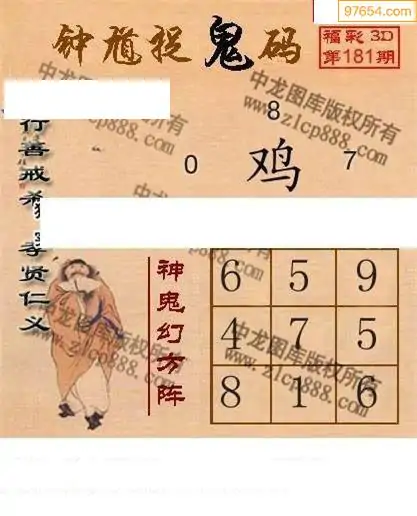 97654.com
钟馗捉鬼码
福彩3D
第181期
中龙图库版权所有
www.zlcp888.com
8
0 鸡 7
行善戒杀 孝贤仁义
神鬼幻方阵
6 5 9
4 7 5
8 1 6
中龙图库版权所有
www.zlcp888.com